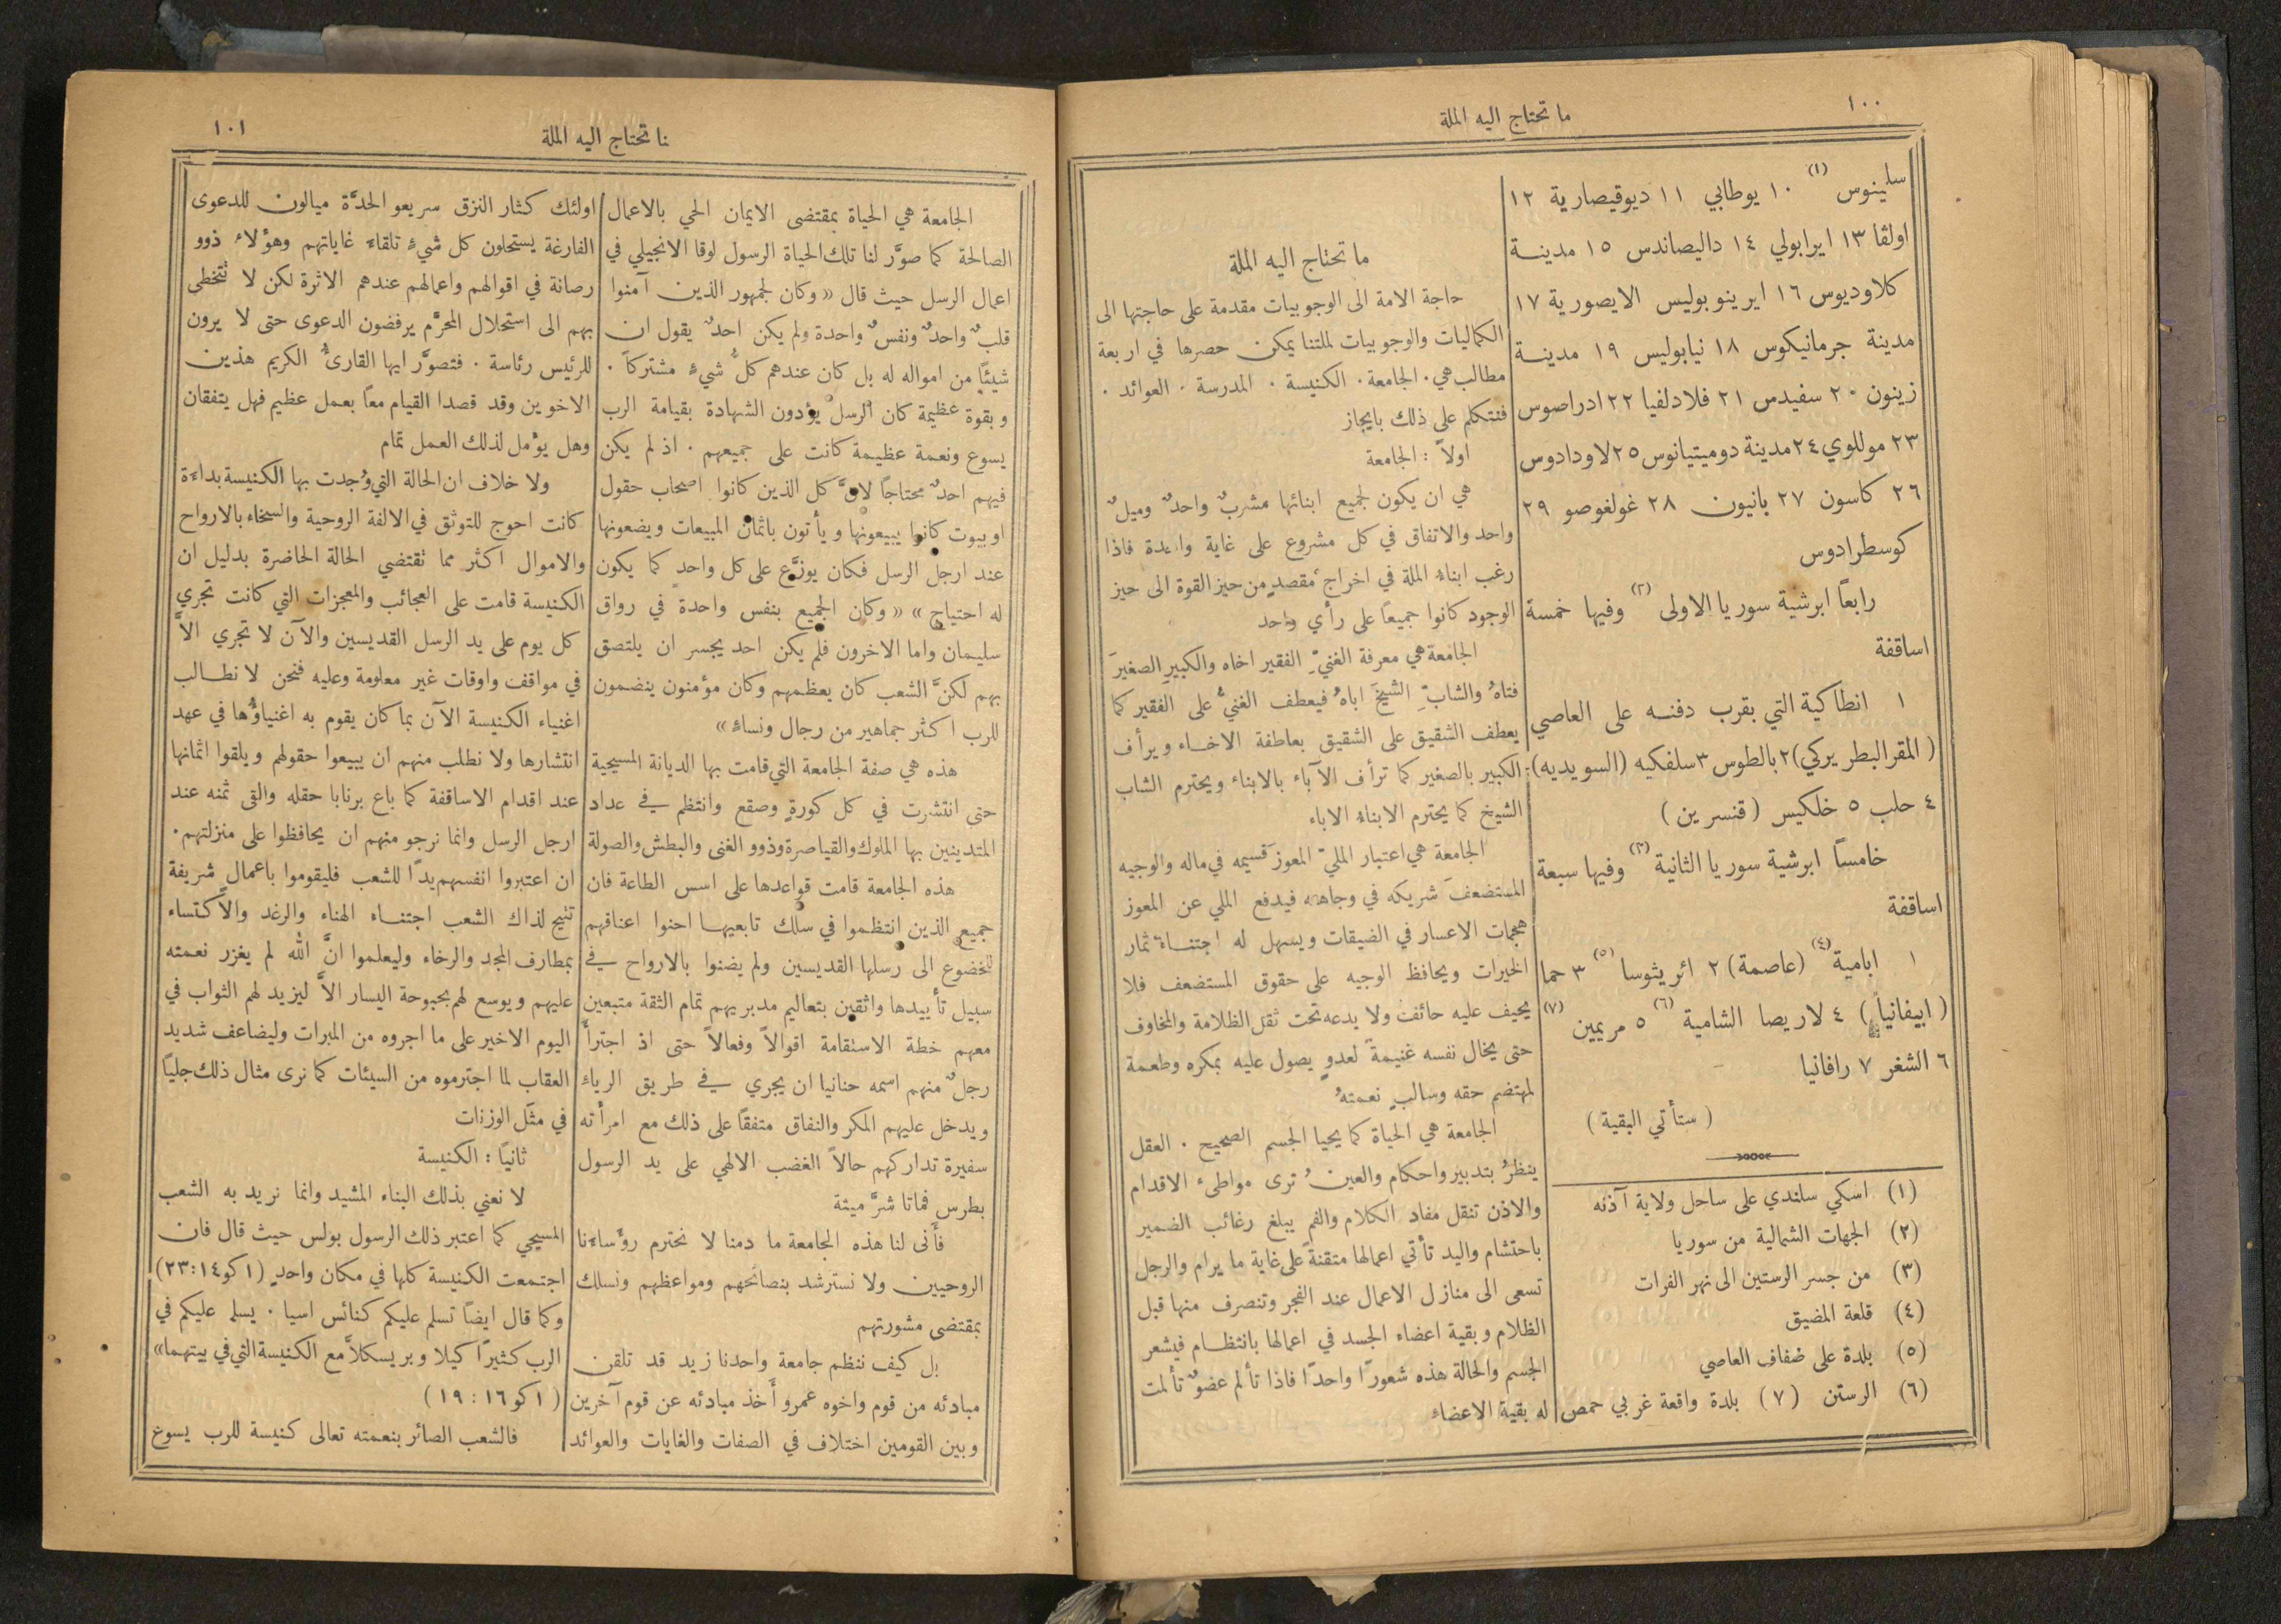 ١٠٠
ما تحتاج اليه الملة
سلينوس (١) ١٠ يوطابي ١١ ديوقيصارية ١٢
اولڤا ١٣ ايرابولي ١٤ داليصاندس ١٥ مدينـة
كلاوديوس ١٦ ايرينوبوليس الايصورية ١٧
مدينة جرمانيكوس ١٨ نيابوليس ١٩ مدينـة
زينون ٢٠ سفيدس ٢١ فلادلفيا ٢٢ ادراصوس
٢٣ موللوي ٢٤ مدينة دوميتيانوس ٢٥ لاودادوس
٢٦ كاسون ٢٧ بانيون ٢٨ غولغوصو ٢٩
كوسطرادوس
رابعاً ابرشية سوريا الاولى (٢) وفيها خمسة
اساقفة
١ انطاكية التي بقرب دفنـه على العاصي
(المقر البطريركي) ٢ بالطوس ٣ سلفكيه (السويديه)
٤ حلب ٥ خلكيس (قنسرين)
خامساً ابرشية سوريا الثانية (٣) وفيها سبعة
اساقفة
١ ابامية (٤) (عاصمة) ٢ ائريثوسا (٥) ٣ حما
(ابيفانيا) ٤ لاريصا الشامية (٦) ٥ مريمين (٧)
٦ الشغر ٧ رافانيا
(ستأتي البقية)
(١) اسكي سلندي على ساحل ولاية آذنه
(٢) الجهات الشمالية من سوريا
(٣) من جسر الرستين الى نهر الفرات
(٤) قلعة المضيق
(٥) بلدة على ضفاف العاصي
(٦) الرستن (٧) بلدة واقعة غربي حمص
ما تحتاج اليه الملة
حاجة الامة الى الوجوبيات مقدمة على حاجتها الى
الكماليات والوجوبيات لملتنا يمكن حصرها في اربعة
مطالب هي . الجامعة . الكنيسة . المدرسة . العوائد .
فنتكلم على ذلك بايجاز
اولاً : الجامعة
هي ان يكون لجميع ابنائها مشربٌ واحدٌ وميلٌ
واحد والاتفاق في كل مشروع على غاية واحدة فاذا
رغب ابناء الملة في اخراج مقصدٍ من حيز القوة الى حيز
الوجود كانوا جميعاً على رأي واحد
الجامعة هي معرفة الغنيّ الفقير اخاه والكبيرِ الصغيرَ
فتاهُ والشابّ الشيخَ اباهُ فيعطف الغنيُّ على الفقير كما
يعطف الشقيق على الشقيق بعاطفة الاخـاء ويرأف
الكبير بالصغير كما ترأف الآباء بالابناء ويحترم الشاب
الشيخ كما يحترم الابناء الاباء
الجامعة هي اعتبار المليّ المعوزَ قسيمه في ماله والوجيه
المستضعفَ شريكه في وجاهه فيدفع الملي عن المعوز
هجمات الاعسار في الضيقات ويسهل له اجتنـاء ثمار
الخيرات ويحافظ الوجيه على حقوق المستضعف فلا
يحيف عليه حائف ولا يدعه تحت ثقل الظلامة والمخاوف
حتى يخال نفسه غنيمةً لعدوٍ يصول عليه بمكره وطعمة
لمهتضم حقه وسالبٍ نعمتهُ
الجامعة هي الحياة كما يحيا الجسم الصحيح . العقل
ينظرُ بتدبير واحكام والعينُ ترى مواطىء الاقدام
والاذن تنقل مفاد الكلام والفم يبلغ رغائب الضمير
باحتشام واليد تأتي اعمالها متقنةً على غاية ما يرام والرجل
تسعى الى منازل الاعمال عند الفجر وتنصرف منها قبل
الظلام وبقية اعضاء الجسد في اعمالها بانتظـام فيشعر
الجسم والحالة هذه شعورًا واحدًا فاذا تألم عضوٌ تألمت
له بقية الاعضاء
١٠١
ما تحتاج اليه الملة
الجامعة هي الحياة بمقتضى الايمان الحي بالاعمال
الصالحة كما صوَّر لنا تلك الحياة الرسول لوقا الانجيلي في
اعمال الرسل حيث قال «وكان لجمهور الذين آمنوا
قلبٌ واحدٌ ونفسٌ واحدة ولم يكن احدٌ يقول ان
شيئًا من امواله له بل كان عندهم كلُّ شيءٍ مشتركاً .
وبقوة عظيمة كان الرسل يؤدون الشهادة بقيامة الرب
يسوع ونعمة عظيمة كانت على جميعهم . اذ لم يكن
فيهم احدٌ محتاجاً لانَّ كل الذين كانوا اصحاب حقول
او بيوت كانوا يبيعونها ويأتون باثمان المبيعات ويضعونها
عند ارجل الرسل فكان يوزَّع على كل واحد كما يكون
له احتياج» «وكان الجميع بنفس واحدة في رواق
سليمان واما الاخرون فلم يكن احد يجسر ان يلتصق
بهم لكنَّ الشعب كان يعظمهم وكان مؤمنون ينضمون
للرب اكثر جماهير من رجال ونساءٍ»
هذه هي صفة الجامعة التي قامت بها الديانة المسيحية
حتى انتشرت في كل كورةٍ وصقع وانتظم في عداد
المتدينين بها الملوك والقياصرة وذوو الغنى والبطش والصولة
هذه الجامعة قامت قواعدها على اسس الطاعة فان
جميع الذين انتظموا في سلك تابعيهـا احنوا اعناقهم
للخضوع الى رسلها القديسين ولم يضنوا بالارواح في
سبيل تأييدها واثقين بتعاليم مدبريهم تمام الثقة متبعين
معهم خطة الاستقامة اقوالاً وفعالاً حتى اذ اجترأ
رجلٌ منهم اسمه حنانيا ان يجري في طريق الرياء
ويدخل عليهم المكر والنفاق متفقاً على ذلك مع امرأته
سفيرة تداركهم حالاً الغضب الالهي على يد الرسول
بطرس فماتا شرَّ ميتة
فأَنى لنا هذه الجامعة ما دمنا لا نحترم رؤَساءنا
الروحيين ولا نسترشد بنصائحهم ومواعظهم ونسلك
بمقتضى مشورتهم
بل كيف ننظم جامعة واحدنا زيد قد تلقن
مبادئه من قوم واخوه عمرو أَخذ مبادئه عن قوم آخرين
وبين القومين اختلاف في الصفات والغايات والعوائد
اولئك كثار النزق سريعو الحدَّة ميالون للدعوى
الفارغة يستحلون كل شيءٍ تلقاء غاياتهم وهؤلاء ذوو
رصانة في اقوالهم واعمالهم عندهم الاثرة لكن لا تتخطى
بهم الى استحلال المحرَّم يرفضون الدعوى حتى لا يرون
للرئيس رئاسة . فتصوَّر ايها القارئُ الكريم هذين
الاخوين وقد قصدا القيام معاً بعمل عظيم فهل يتفقان
وهل يؤمل لذلك العمل تمام
ولا خلاف ان الحالة التي وُجدت بها الكنيسة بداءة
كانت احوج للتوثق في الالفة الروحية والسخاء بالارواح
والاموال اكثر مما تقتضي الحالة الحاضرة بدليل ان
الكنيسة قامت على العجائب والمعجزات التي كانت تجري
كل يوم على يد الرسل القديسين والآن لا تجري الاَّ
في مواقف واوقات غير معلومة وعليه فنحن لا نطـالب
اغنياء الكنيسة الآن بما كان يقوم به اغنياؤُها في عهد
انتشارها ولا نطلب منهم ان يبيعوا حقولهم ويلقوا اثمانها
عند اقدام الاساقفة كما باع برنابا حقله والقى ثمنه عند
ارجل الرسل وانما نرجو منهم ان يحافظوا على منزلتهم .
ان اعتبروا انفسهم يدًا للشعب فليقوموا باعمال شريفة
تتيح لذاك الشعب اجتنـاء الهناء والرغد والاكتساء
بمطارف المجد والرخاء وليعلموا انَّ الله لم يغزر نعمته
عليهم ويوسع لهم بحبوحة اليسار الاَّ ليزيد لهم الثواب في
اليوم الاخير على ما اجروه من المبرات وليضاعف شديد
العقاب لما اجترموه من السيئات كما نرى مثال ذلك جليًا
في مثَل الوزنات
ثانيًا : الكنيسة
لا نعني بذلك البناء المشيد وانما نريد به الشعب
المسيحي كما اعتبر ذلك الرسول بولس حيث قال فان
اجتمعت الكنيسة كلها في مكان واحدٍ (١كو١٤:٢٣)
وكما قال ايضاً تسلم عليكم كنائس اسيا . يسلم عليكم في
الرب كثيرًا كيلا وبريسكلاَّ مع الكنيسة التي في بيتهما»
(١ كو ١٦ : ١٩)
فالشعب الصائر بنعمته تعالى كنيسة للرب يسوع